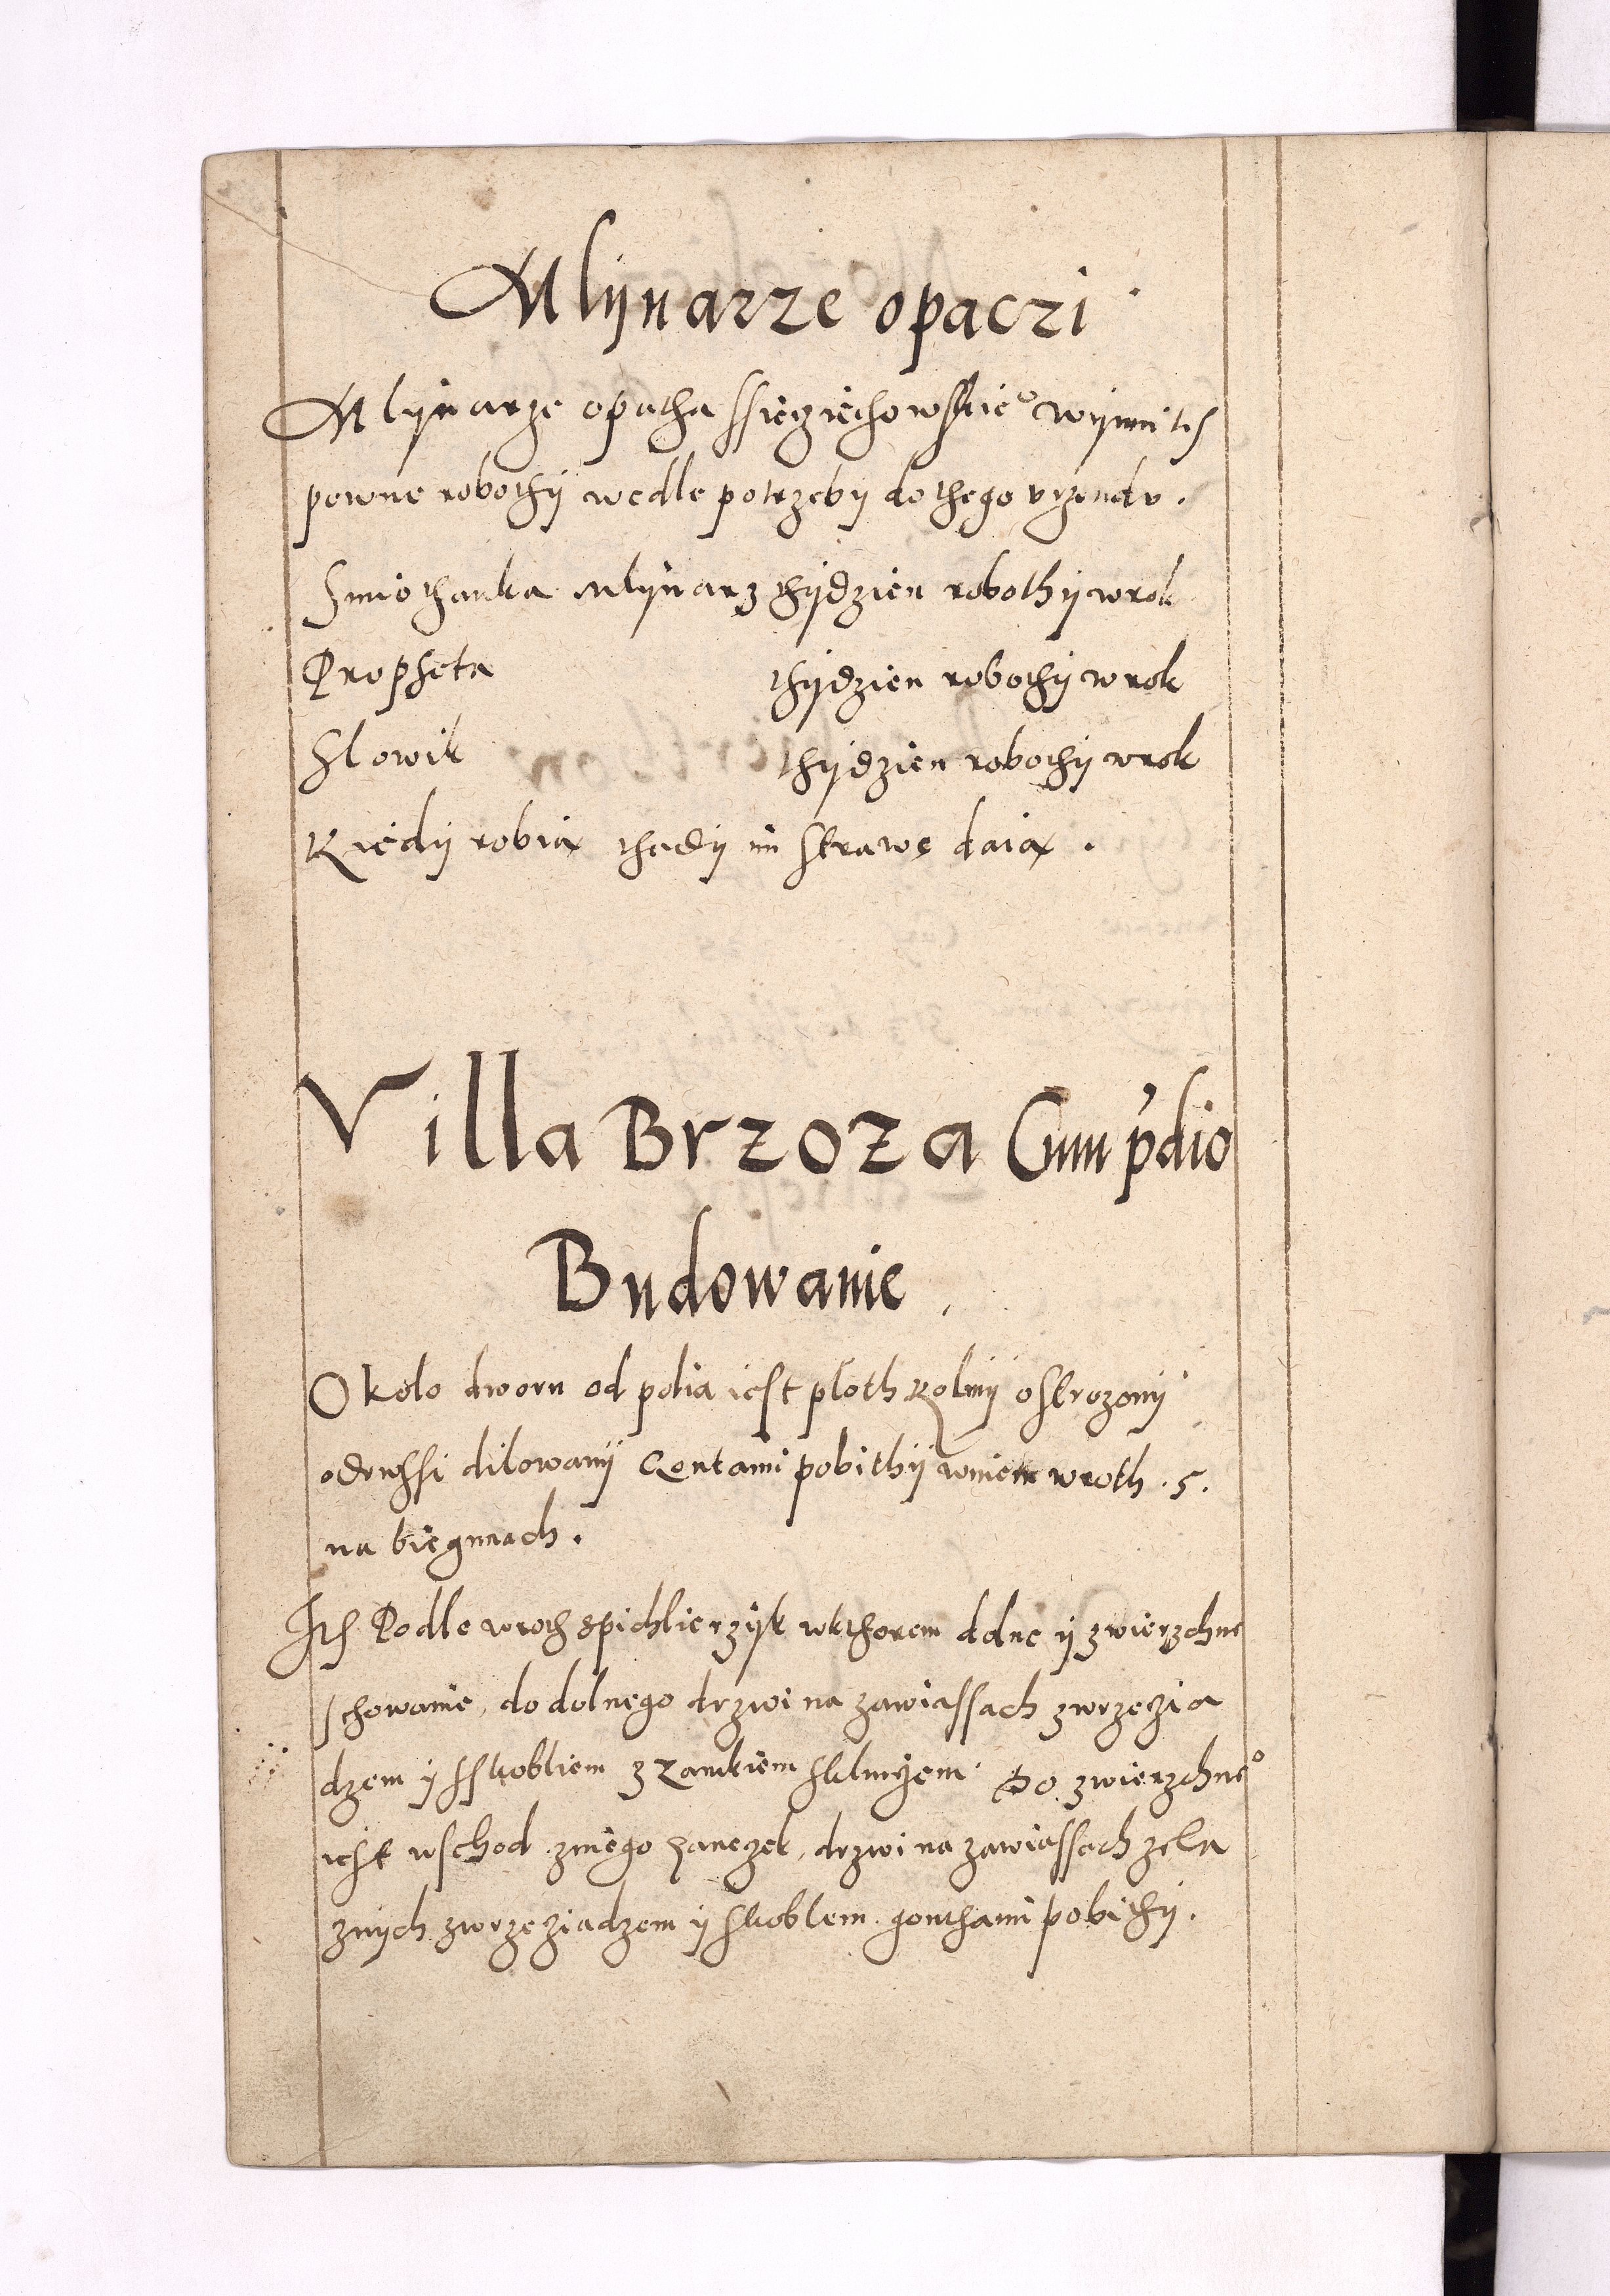 Mlynarze opaczi
Mlynarze opatha Ssieziechowskie° wynni ths
pewne robothy wedle potrzeby do thego vrzendv.
Smiothanka Mlynarz thydzien robothy w rok
Propheta thydzien robothy w rok
Slowik thydzien robothy w rok
Kiedy robią thedy im strawę daią.
Villa Brzoza Cum p'dio
Budowanie.
Około dworu od polia iest płoth kolny ostrozony
odewssi dilowany Gontami pobithy w niem wroth .5.
na biegunach.
Ith Podle wroth spichlierzyk w kthorem dolne y zwierzchne
schowanie, do dolnego drzwi na zawiassach z wrzezia
dzem y sskobliem z zamkiem Do zwierzchne°
iest wschod z niego ganezek, drzwi na zawiassach zela
znych z wrzeziadzem y skoblem gonthami pobithy.